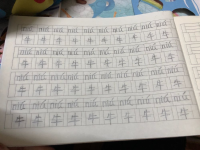 niú niú niú niú niú niú niú niú niú
牛 牛 牛 牛 牛 牛 牛 牛 牛
niú niú niú niú niú niú niú niú niú
牛 牛 牛 牛 牛 牛 牛 牛 牛
niú niú niú niú niú niú niú niú niú
牛 牛 牛 牛 牛 牛 牛 牛 牛
niú niú niú niú niú niú niú niú niú
牛 牛 牛 牛 牛 牛 牛 牛 牛